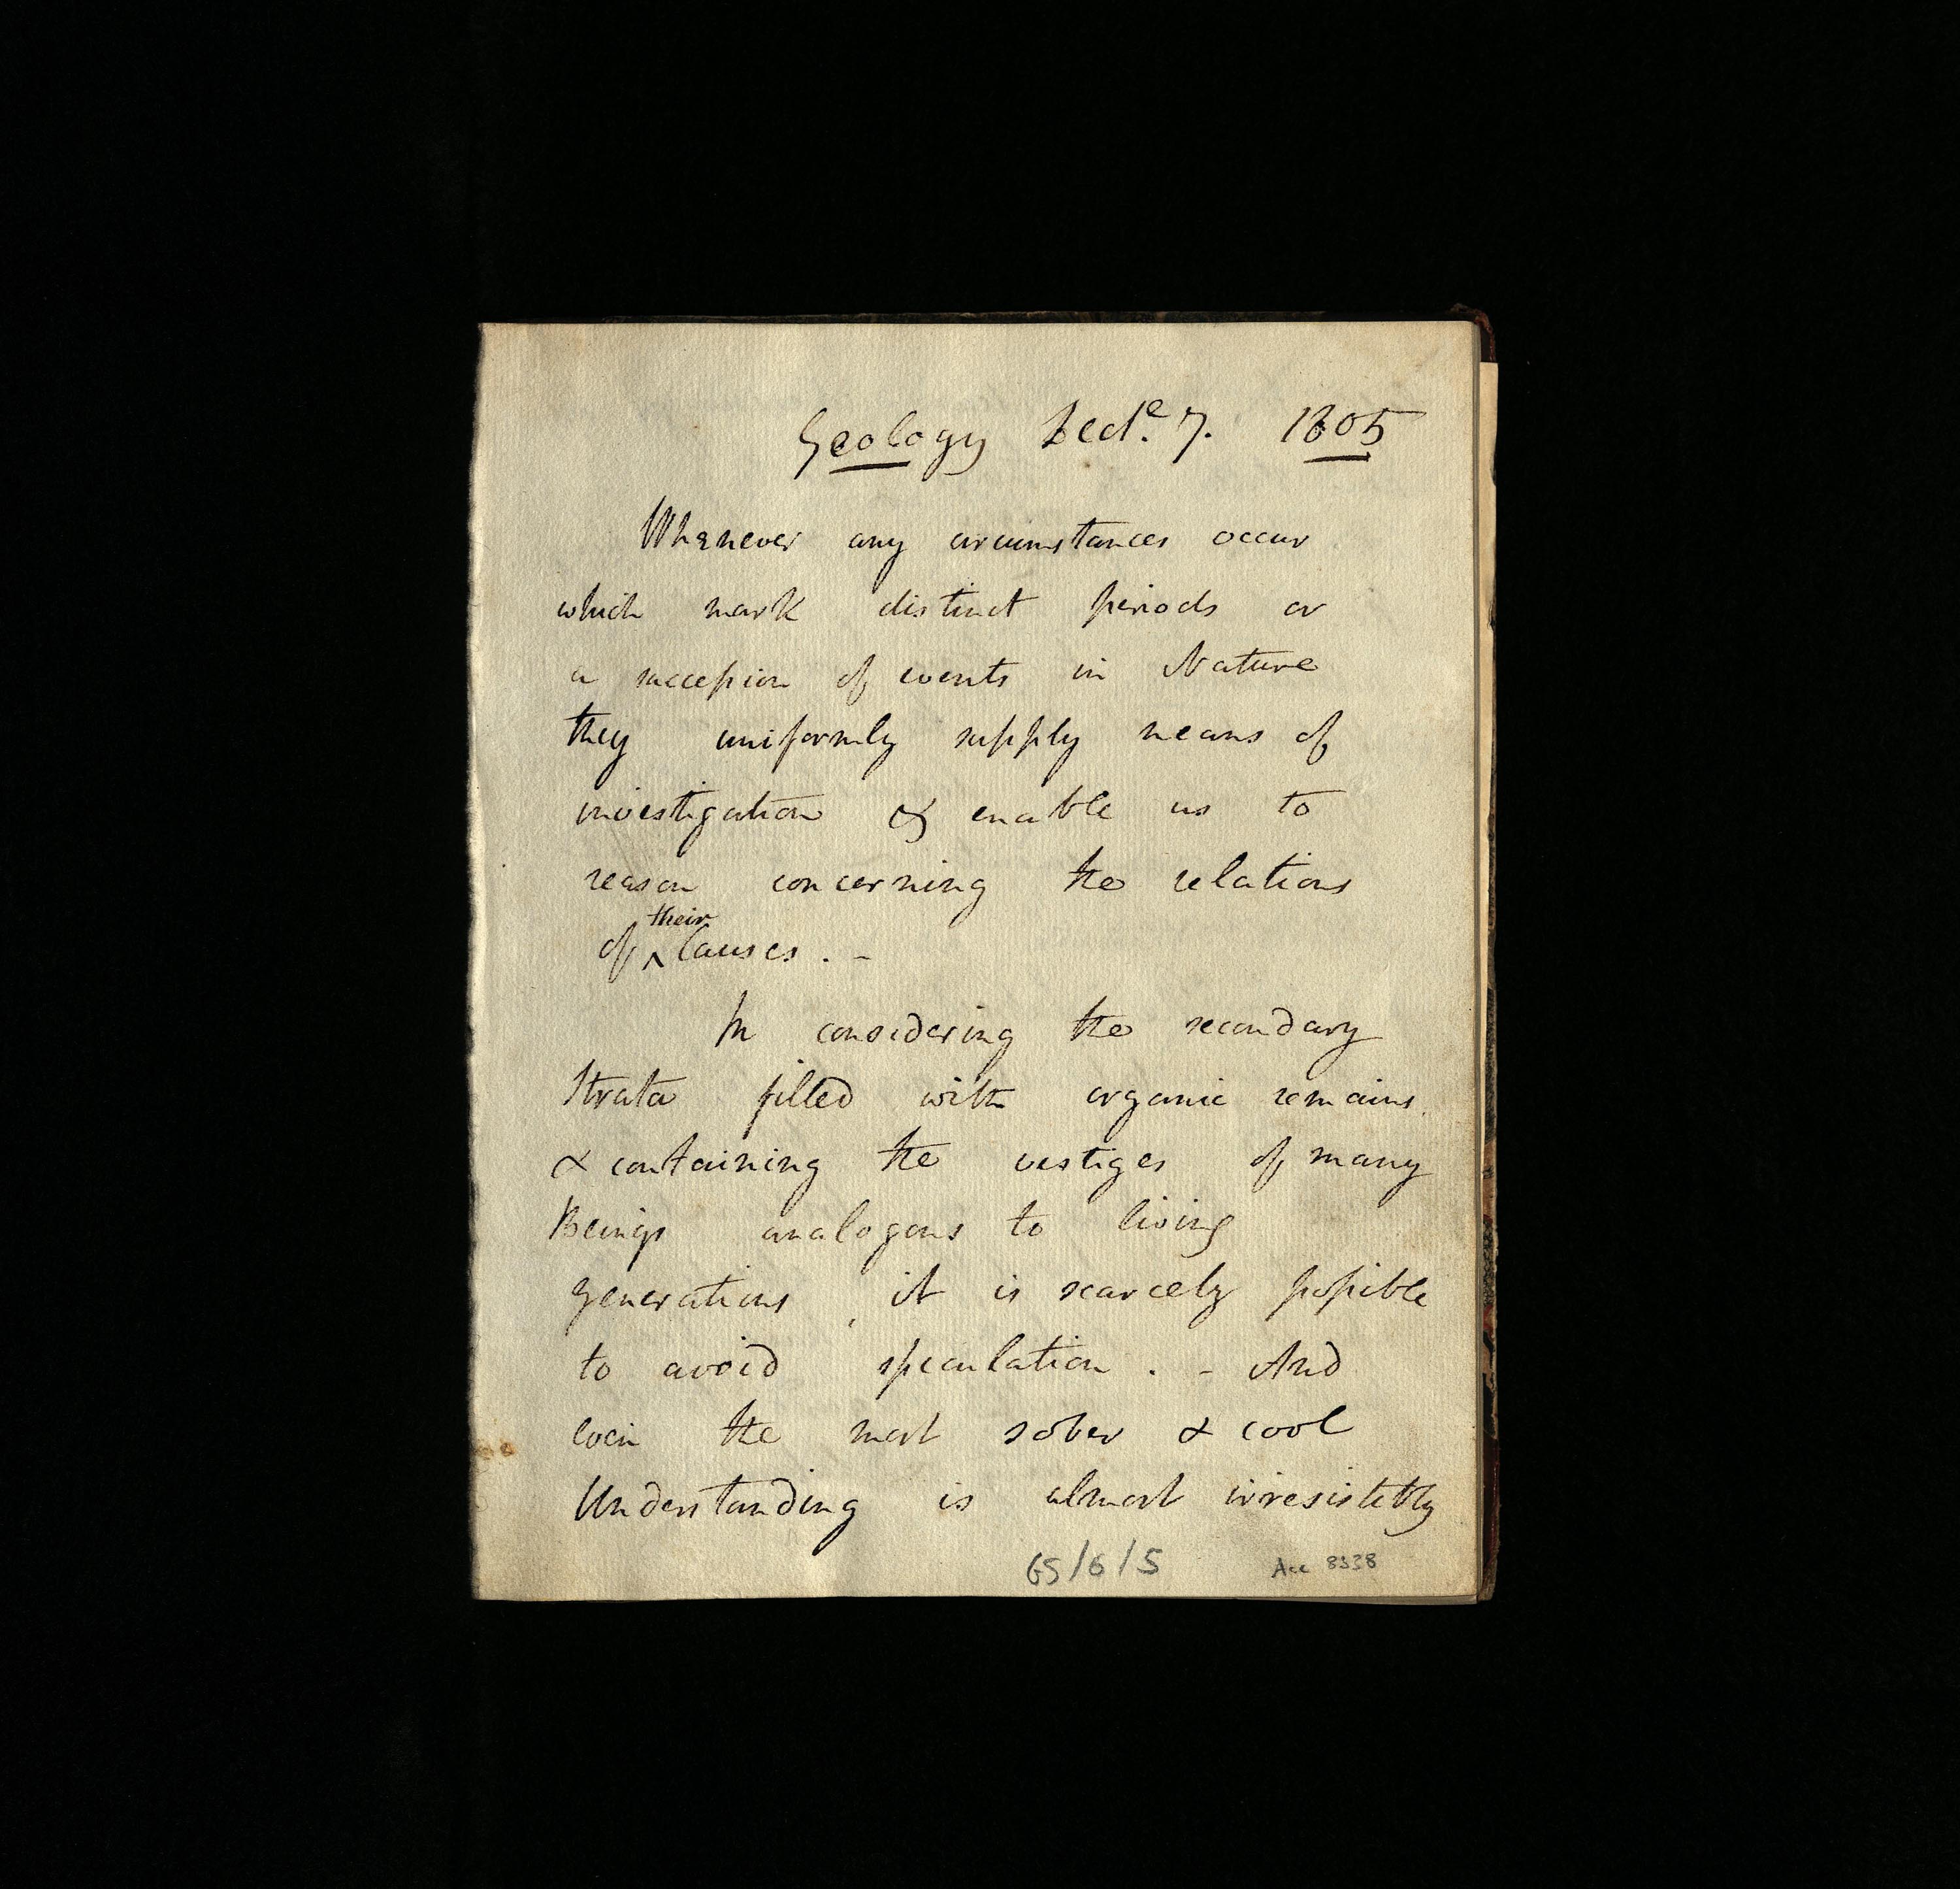 Geology Lect.e 7. 1805
Whenever any circumstances occur
which mark distinct periods or
a succession of events in Nature
they uniformly supply means of
investigation & enable us to
reason concerning the relations
of ^their Causes. -
In considering the secondary
Strata filled with organic remains
& containing the vestiges of many
Beings analogous to living
generations, it is scarcely possible
to avoid speculation. - And
even the most sober & cool
Understanding is almost irresistibly
GS/6/5 Acc 8338